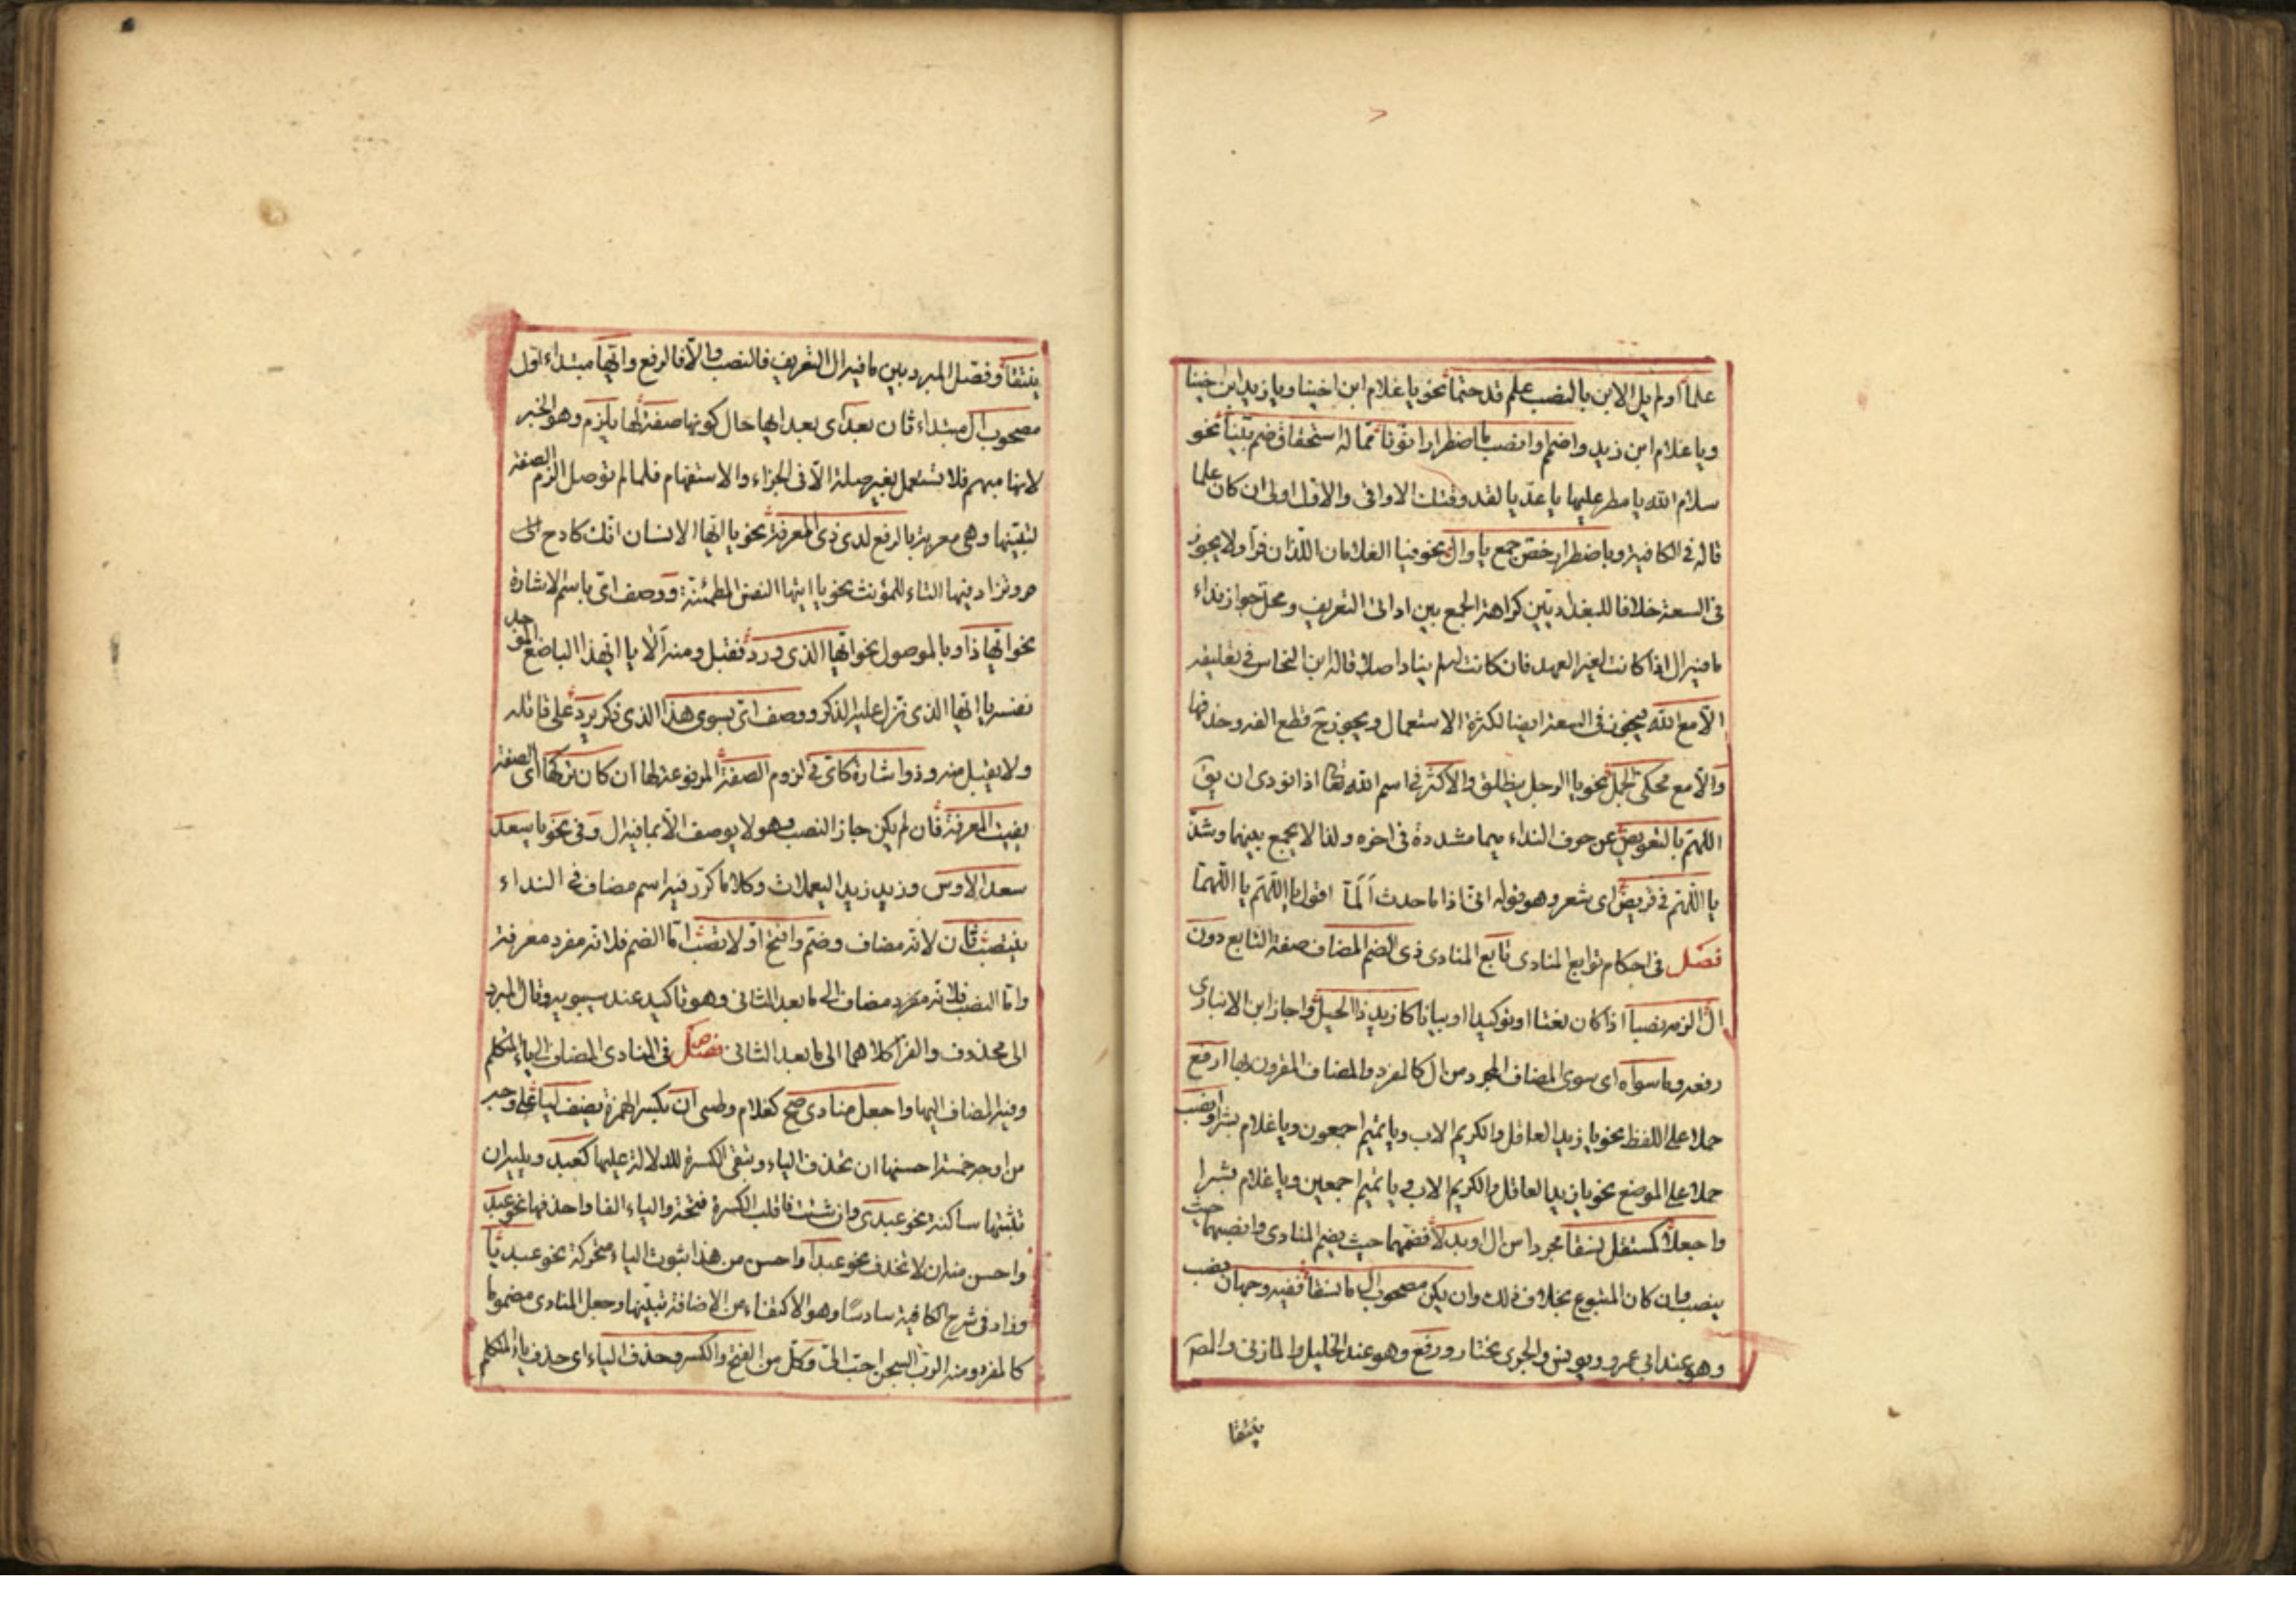 علما اولم يل الابن بالنصب علم قد حتما نحو يا غلام ابن اخينا ويا زيد ابن اخينا
ويا غلام ابن زيد واضمم او انصب ما اضطرارا نونا مما له استحقاق ضم بيّنا نحو
سلام الله يا مطر عليها يا عديا لقد وقتك الاواقى والاول اولى ان كان علما
قاله فى الكافية وباضطرار خص جمع يا وال نحو فيا الغلامان اللذان فرّا ولا يجوز
فى السعة خلافا للبغداديين كراهة الجمع بين اداتى التعريف ومحل جواز نداء
ما فيه ال اذا كانت لغير العهد فان كانت له لم يناد اصلا قاله ابن النحاس فى تعليقه
الّا مع الله فيجوز فى السعة ايضا لكثرة الاستعمال ويجوز ح قطع الفه وحذفها
والّا مع محكى الجمل نحو يا الرجل ينطلق والاكثر فى اسم الله تعالى اذا نودى ان يق
اللهم بالتعويض عن حرف النداء ميما مشددة فى اخره ولذا لا يجمع بينهما وشذ
يا اللهم فى قريض اى شعر وهو قوله انى اذا ما حدث المّا اقول يا اللهم يا اللهما
فصل فى احكام توابع المنادى تابع المنادى ذى الضم المضاف صفة التابع دون
ال الزمه نصبا اذا كان نعتا او توكيدا او بيانا كازيد ذا الحيل واجاز ابن الانبارى
رفعه وما سواه اى سوى المضاف المجرد من ال كالمفرد والمضاف المقرون بها ارفع
حملا على اللفظ نحو يا زيد العاقل والكريم الاب ويا تميم اجمعون ويا غلام بشر وانصب
حملا على الموضع نحو يا زيد العاقل والكريم الاب ويا تميم اجمعين ويا غلام بشرا
واجعلا كمستقل نسقا مجردا من ال او بدلا فضمهما حيث يضم المنادى وانصبهما حيث
ينصب وان كان المتبوع بخلاف ذلك وان يكن مصحوب ال ما نسقا ففيه وجهان نصب
وهو عند ابى عمرو ويونس والجرمى يختار ورفع وهو عند الخليل والمازنى والمص
ينتقا
ينتقا وفصل المبرد بين ما فيه ال التعريف فالنصب والّا فالرفع وايّها مبتداء اول
مصحوب ال مبتداء ثان بعد اى بعد ايها حال كونها صفة لها يلزم وهو الخبر
لانها مبهم فلا تستعمل بغير صلة الّا فى الجزاء والاستفهام فلما لم توصل الزم الصفة
لتبيّنها وهى معربة بالرفع لدى ذى المعرفة نحو يا ايها الانسان انك كادح الى
وتزاد فيها التاء للمؤنث نحو يا ايتها النفس المطمئنة ووصف اى باسم الاشارة
نحو ايّها ذا وبالموصول نحو ايها الذى ورد فقبل ومنه الا يا ايهذا الباخع الوجد
نفسه يا ايها الذى نزل عليه الذكر ووصف اى بسوى هذا الذى ذكر يرد على قائله
ولا يقبل منه وذو اشارة كاىّ فى لزوم الصفة المرفوعة لها ان كان تركها اى الصفة
يفيت المعرفة فان لم يكن جاز النصب وهو لا يوصف الّا بما فيه ال وفى نحو يا سعد
سعد الاوس وزيد زيد اليعملات وكلا ما كرّر فيه اسم مضاف فى النداء
ينتصب ثان لانه مضاف وضم وافتح اوّلا تصب امّا الضم فلانه مفرد معرفة
وامّا النصب فلانه مضاف الى ما بعد الثانى وهو تاكيد عند سيبويه وقال المبرد
الى محذوف والفرّا كلاهما الى ما بعد الثانى فصل فى المنادى المضاف الى ياء المتكلم
وفيه المضاف اليها واجعل منادى صح كغلام وظبى ان بكسر الهمزة يضف ليا على وجه
من اوجه خمسة احسنها ان تحذف الياء وتبقى الكسرة للدلالة عليها كعبد ويليه ان
تثبتها ساكنة نحو عبدى وان شئت فاقلب الكسرة فتحة والياء الفا واحذفها نحو عبد
واحسن منه ان لا تحذف نحو عبدا واحسن من هذا ثبوت الياء متحركة نحو عبديا
وزاد فى شرح الكافية سادسا وهو الاكتفاء من الاضافة بنيتها وجعل المنادى مضموما
كالمفرد ومنه الرب السجن احب الى وكل من الفتح والكسر وحذف الياء اى حذف ياء المتكلم